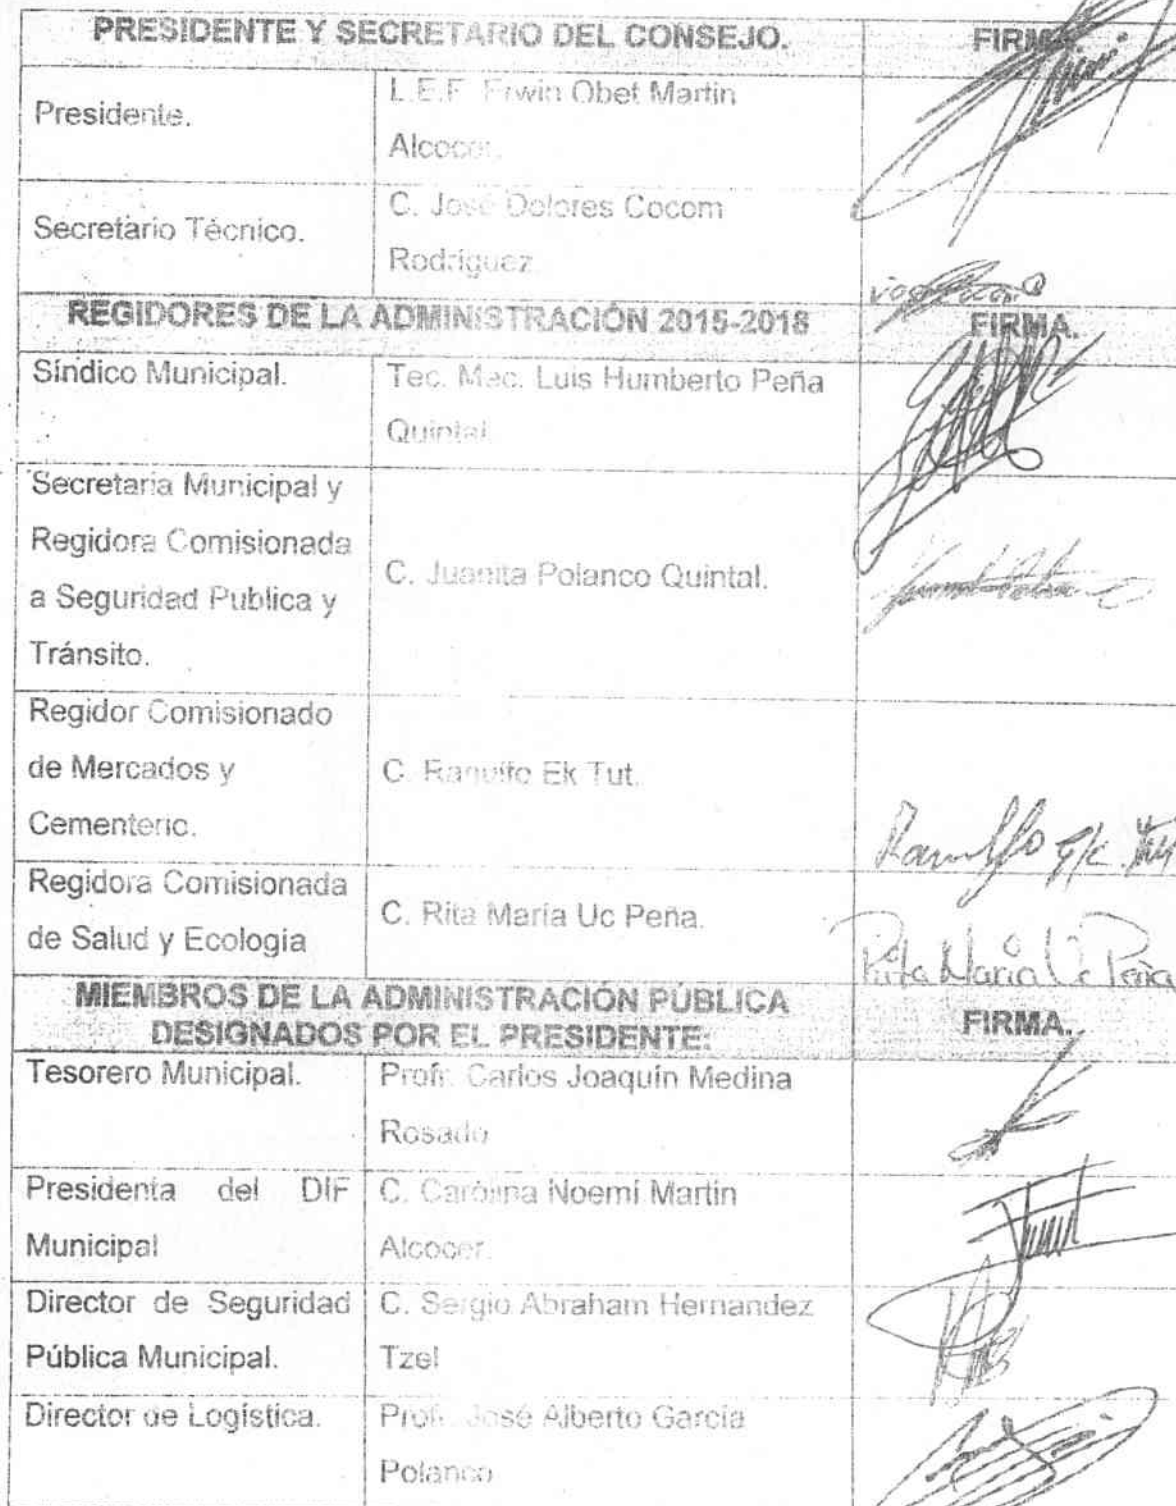 PRESIDENTE Y SECRETARIO DEL CONSEJO. FIRMA.
Presidente. L.E.F. Erwin Obet Martin
Alcocer.
Secretario Técnico. C. José Dolores Cocom
Rodríguez
REGIDORES DE LA ADMINISTRACIÓN 2015-2018 FIRMA.
Síndico Municipal. Tec. Mec. Luis Humberto Peña
Quintal
Secretaria Municipal y
Regidora Comisionada
a Seguridad Publica y
Tránsito.
C. Juanita Polanco Quintal.
Regidor Comisionado
de Mercados y
Cementerio.
C. Ranulfo Ek Tut.
Ranulfo Ek. Tut
Regidora Comisionada
de Salud y Ecologia
C. Rita María Uc Peña.
Rita Maria Uc Peña
MIEMBROS DE LA ADMINISTRACIÓN PÚBLICA
DESIGNADOS POR EL PRESIDENTE:
FIRMA.
Tesorero Municipal. Profr. Carlos Joaquín Medina
Rosado
Presidenta del DIF
Municipal
C. Carolina Noemí Martin
Alcocer.
Director de Seguridad
Pública Municipal.
C. Sergio Abraham Hernandez
Tzel
Director de Logística. Profr. José Alberto García
Polanco